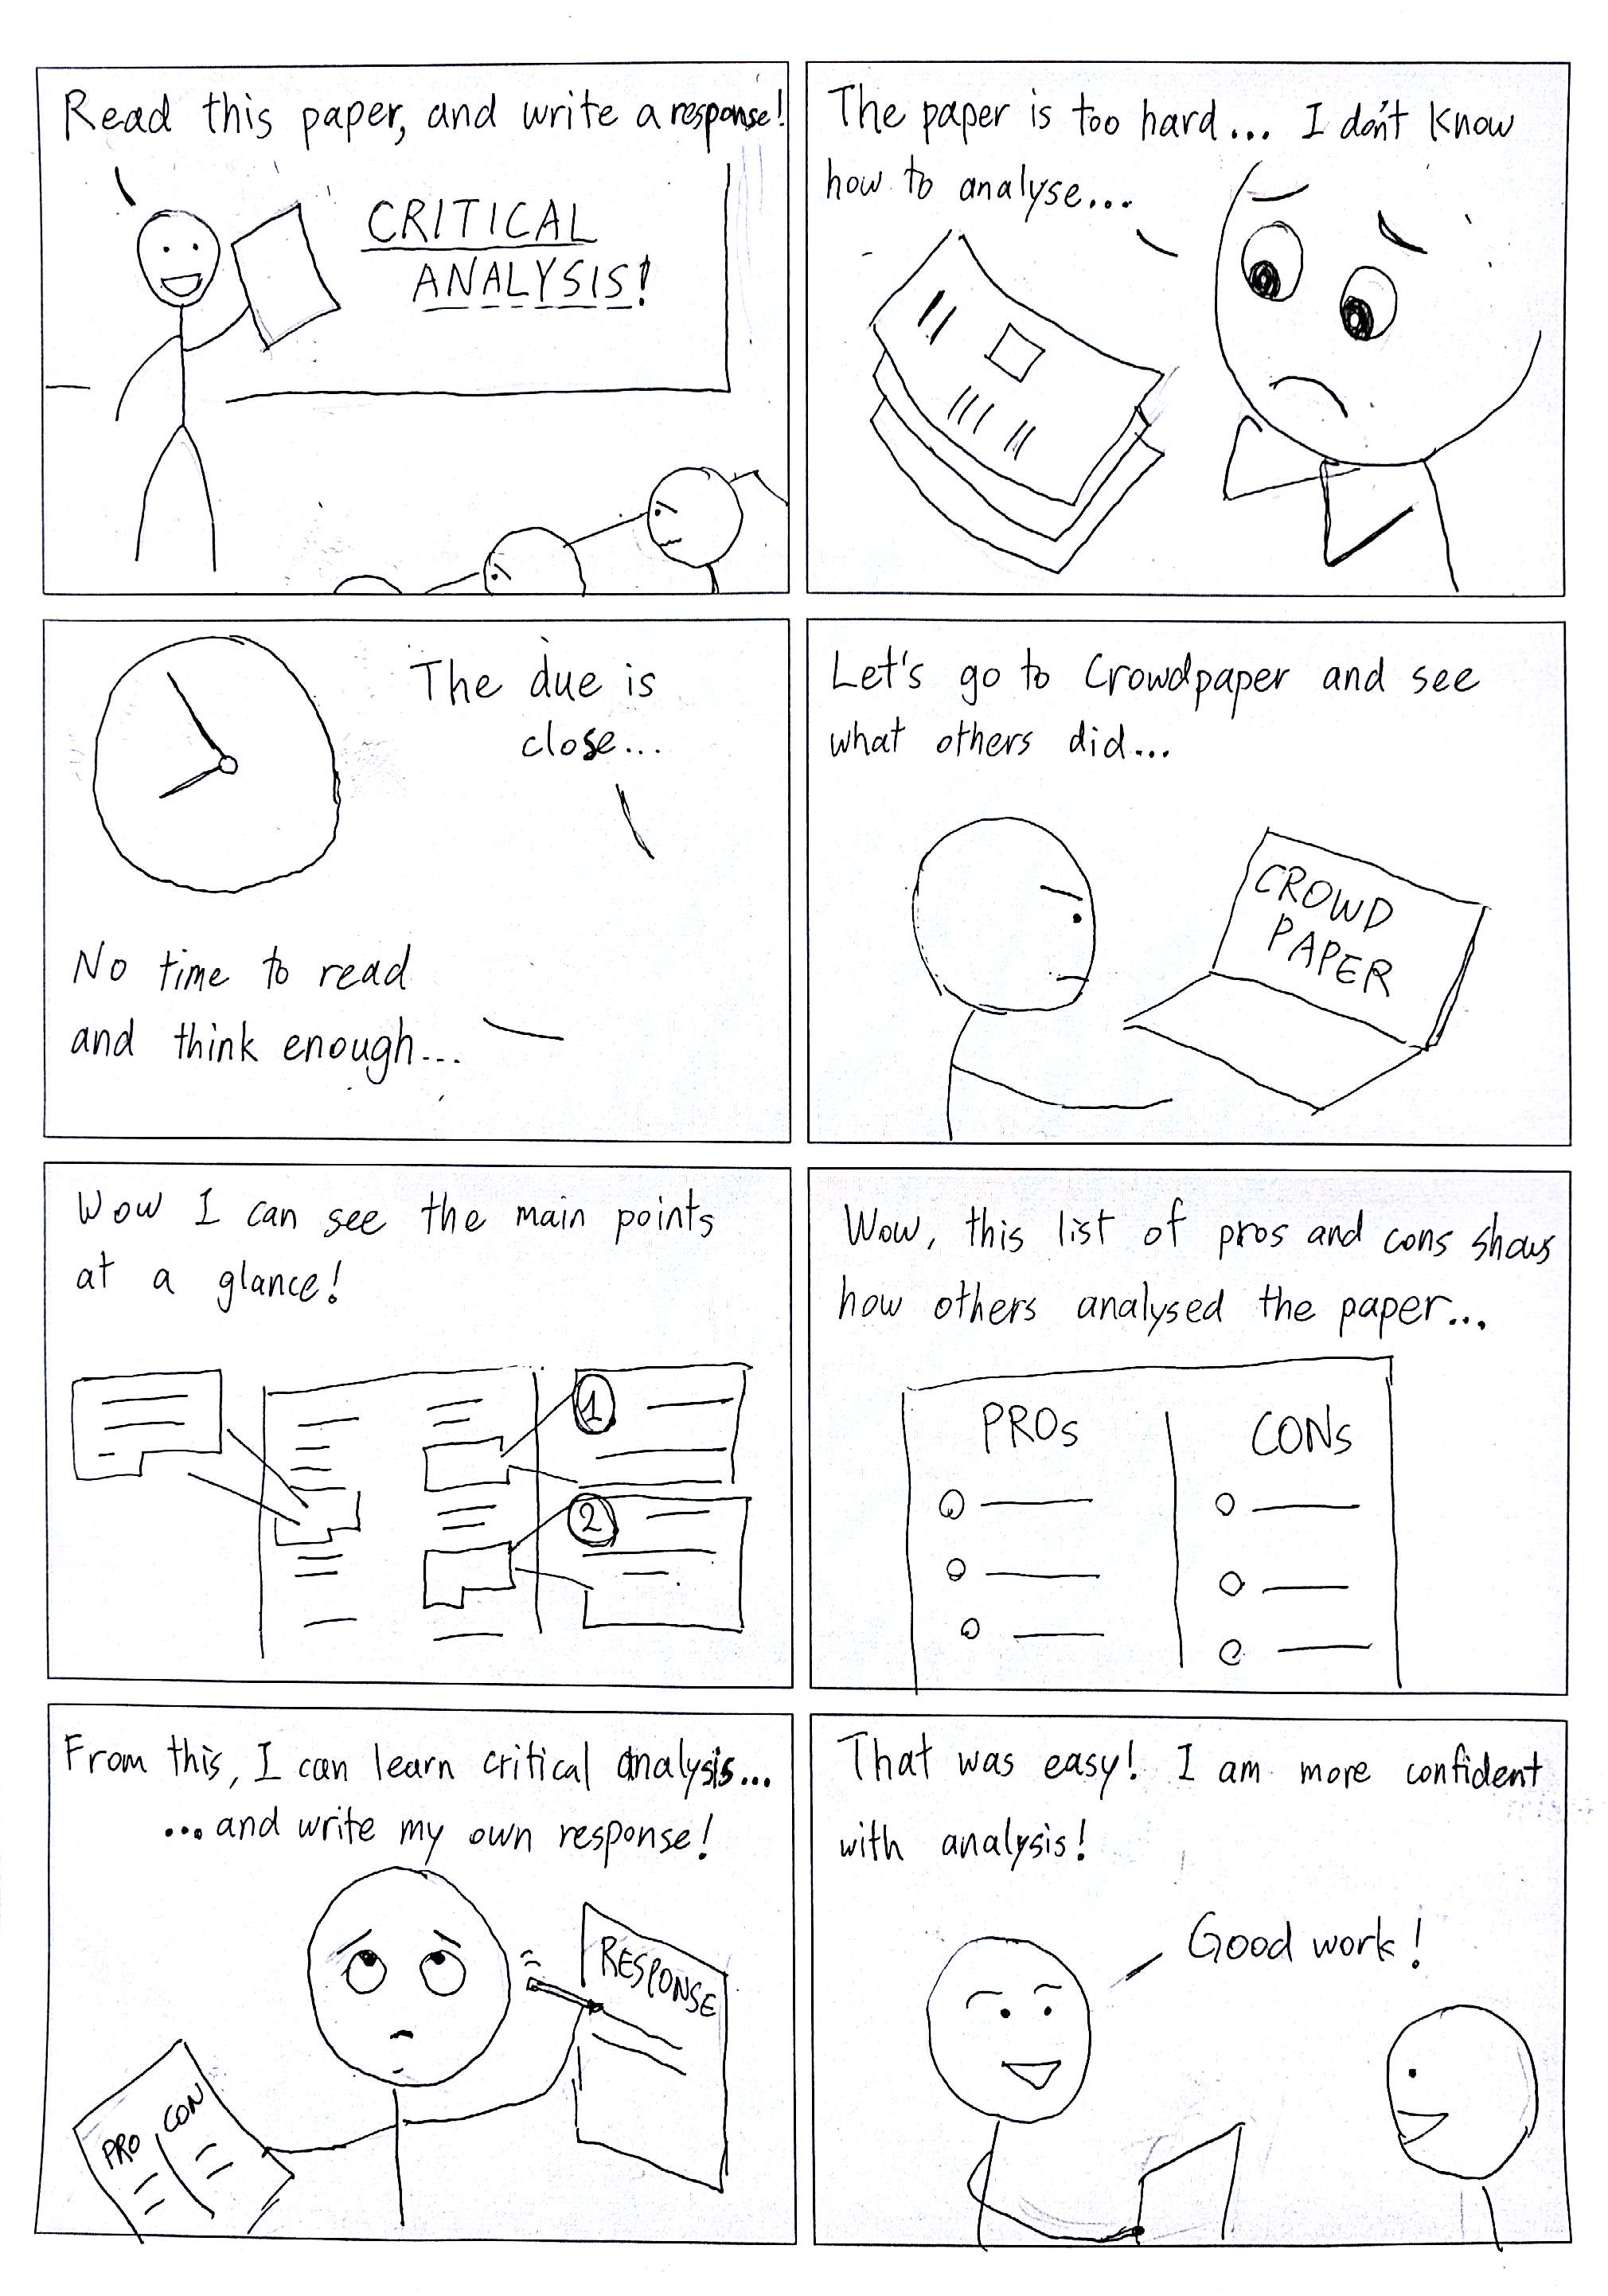 Read this paper, and write a response!
CRITICAL
ANALYSIS!
The paper is too hard... I don't know
how to analyse...
The due is
close...
No time to read
and think enough...
Let's go to Crowdpaper and see
what others did...
CROWD
PAPER
Wow I can see the main points
at a glance!
1
2
Wow, this list of pros and cons shows
how others analysed the paper...
PROs
CONs
From this, I can learn critical analysis...
...and write my own response!
RESPONSE
PRO CON
That was easy! I am more confident
with analysis!
Good work!